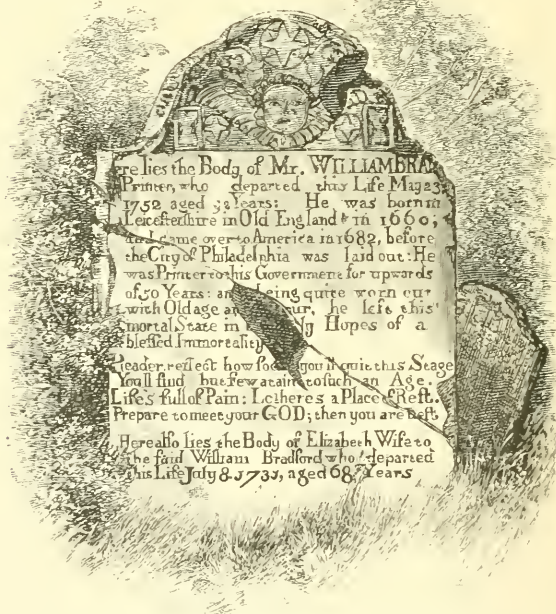 re lies the Body of Mr. WILLIAM BRAD
Printer, who departed this Life May 23,
1752 aged 92 Years: He was born in
Leicestershire in Old England in 1660;
and came over to America in 1682, before
the City of Philadelphia was laid out: He
was Printer to this Government for upwards
of 50 Years: and being quite worn out
with Old age and our, he left this
mortal State in Hopes of a
blessed Immortality
Reader, reflect how soon you'll quit this Stage
You'll find but few atain to such an Age.
Life's full of Pain: Lo here's a Place of Rest.
Prepare to meet your GOD; then you are blest
Here also lies the Body of Elizabeth Wife to
the said William Bradford who departed
this Life July 8. 1731, aged 68 Years